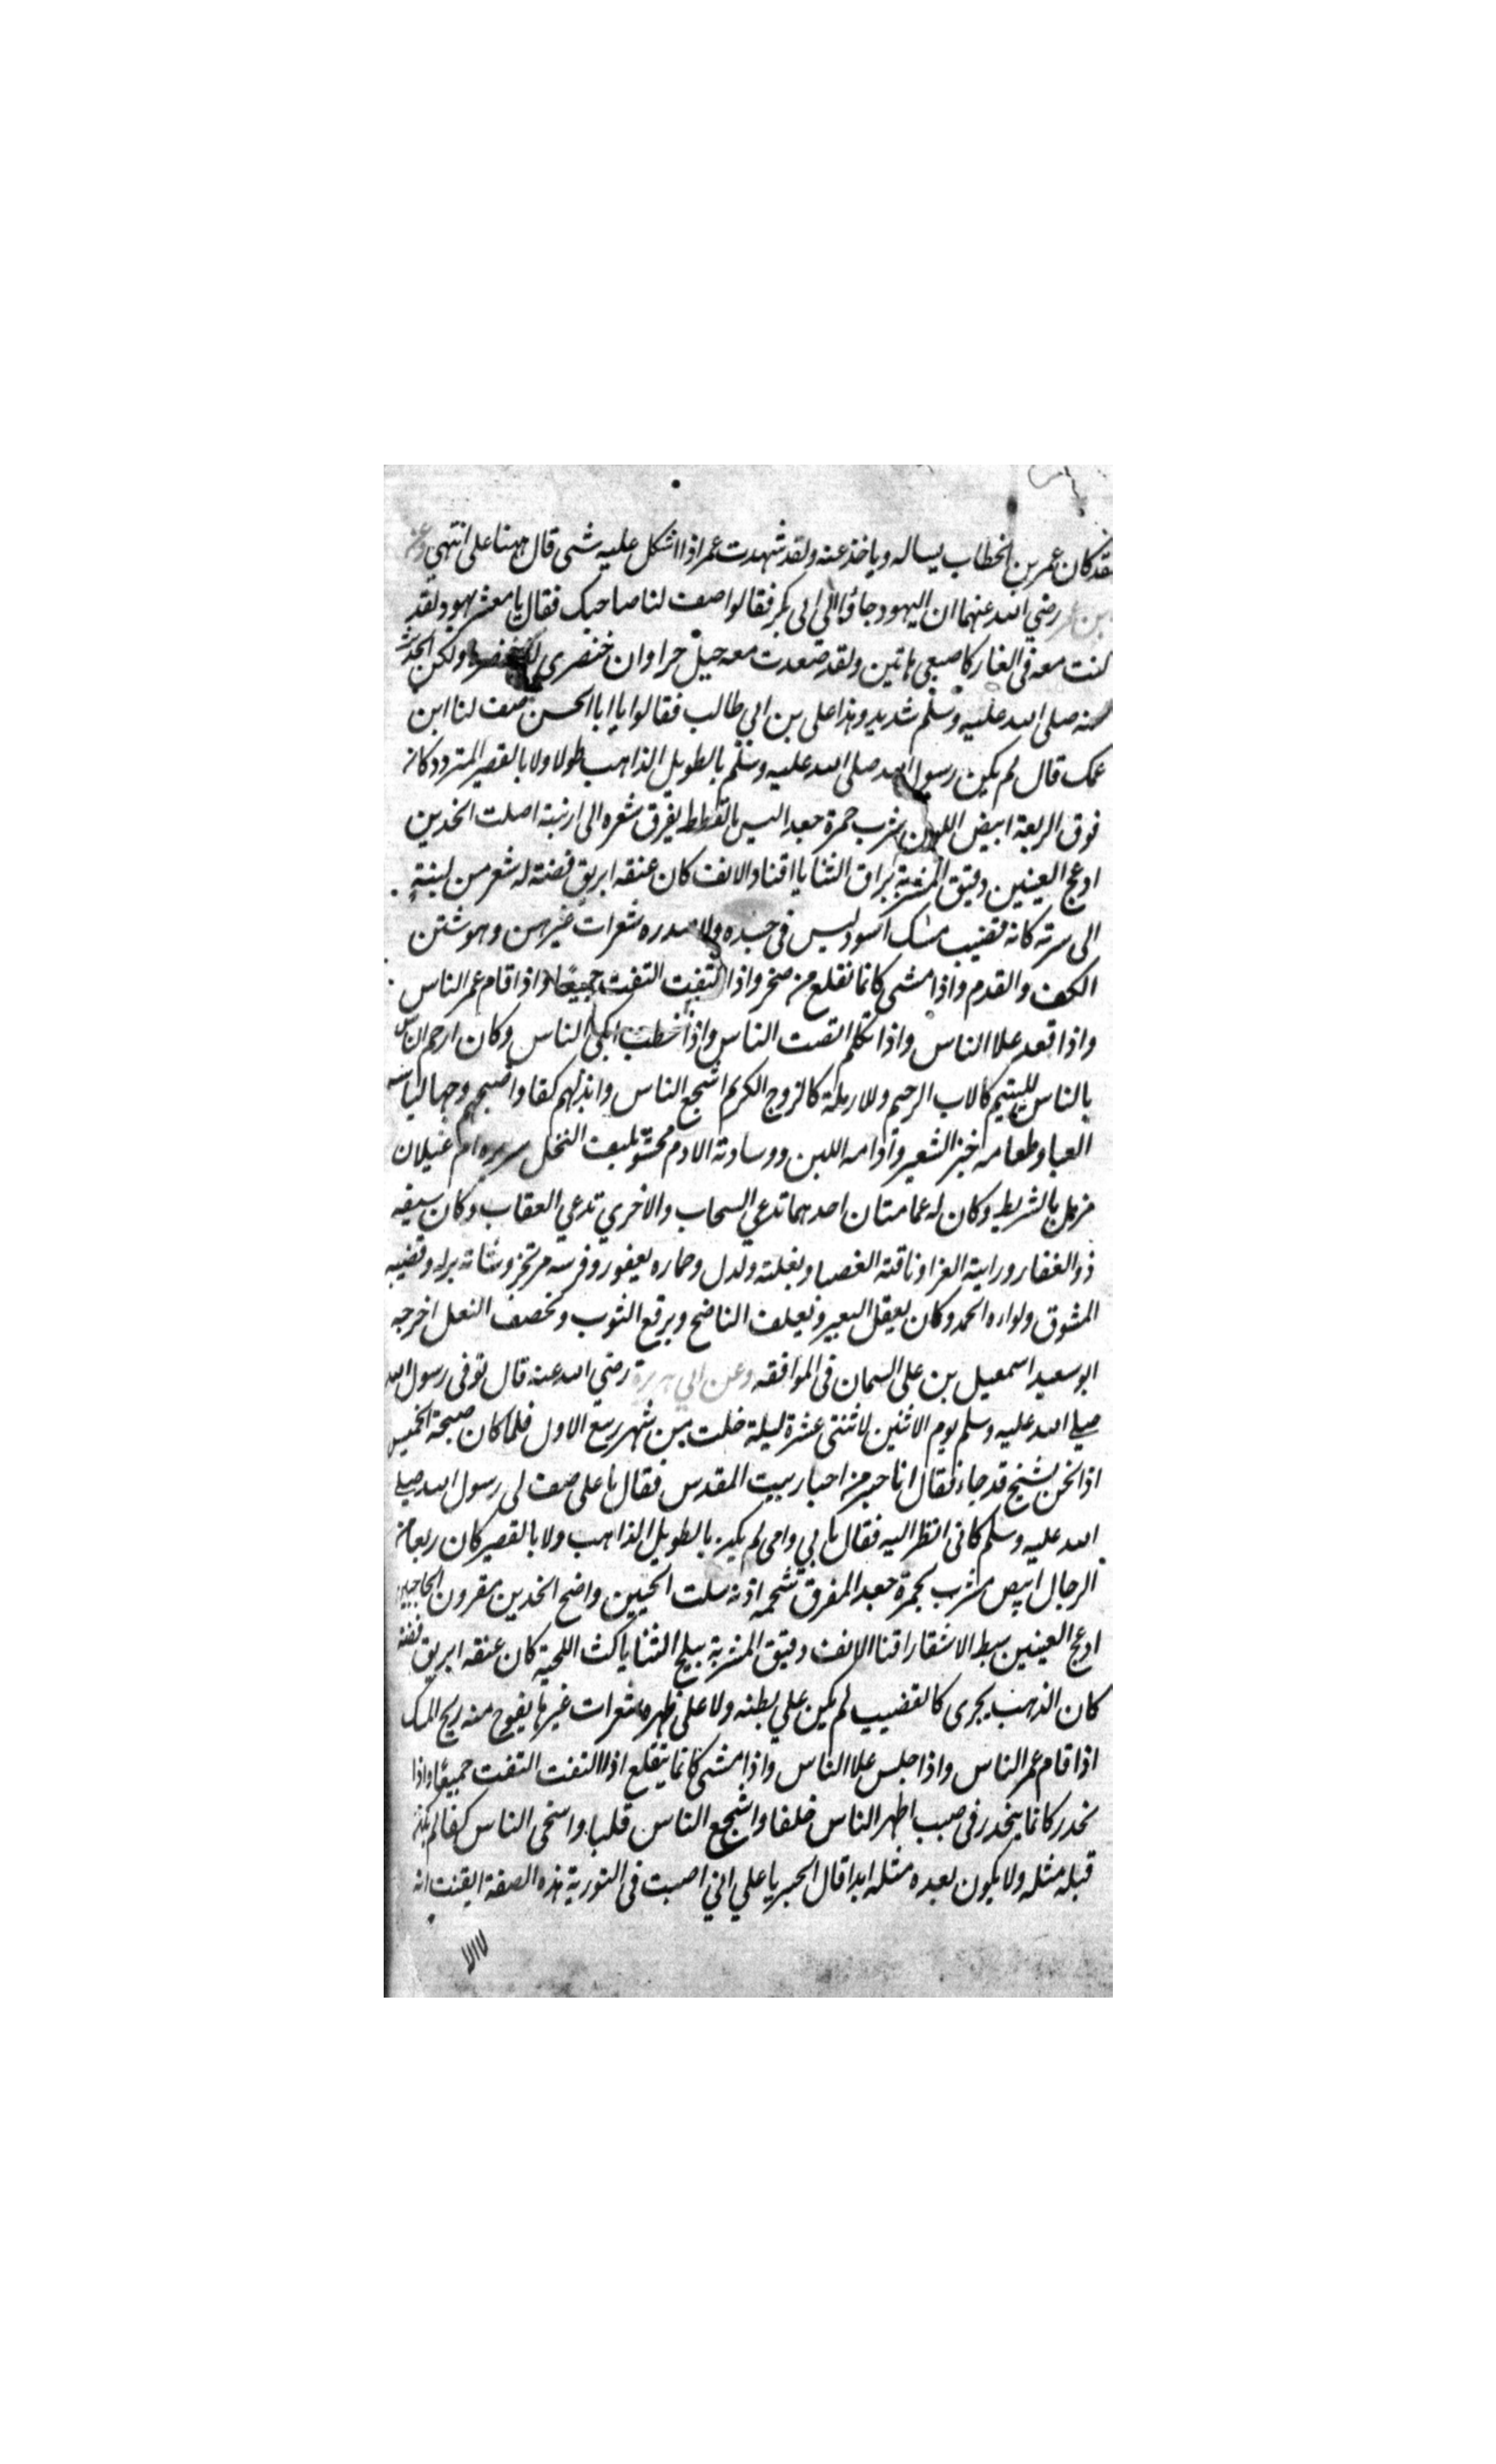 فقد كان عمر بن الخطاب يساله وياخذ عنه ولقد شهدت عمر اذا اشكل عليه شى قال ههنا على انتهى وعن
ابن عمر رضي الله عنهما ان اليهود جاؤا الى ابى بكر فقالوا صف لنا صاحبك فقال يا معشر يهود لقد
كنت معه فى الغار كاصبعى هاتين ولقد صعدت معه جبل حرا وان خنصرى لفى خنصره ولكن الحديث
عنه صلى الله عليه وسلم شديد وهذا على بن ابي طالب فقالوا يا ابا الحسن صف لنا ابن
عمك قال لم يكن رسول الله صلى الله عليه وسلم بالطويل الذاهب طولا ولا بالقصير المتردد كان
فوق الربعة ابيض اللون مشرب حمرة جعد اليس بالقطط يفرق شعره الى ارنبته اصلت الخدين
ادعج العينين دقيق المشربة براق الثنايا اقنا والانف كان عنقه ابريق فضته له شعر من لبنته
الى سرته كانه قضيب مسك اسود ليس فى جسده ولا صدره شعرات غيرهن وهو شتن
الكف والقدم واذا مشى كانما تقلع من صخر واذا التفت التفت جميعا واذا قام عمر الناس
واذا قعد علا الناس واذا تكلم انصت الناس واذا خطب ابكى الناس وكان ارحم الناس
بالناس لليتيم كالاب الرحيم وللارملة كالزوج الكريم اشجع الناس وابذلهم كفا واصبحهم وجها لباسه
العبا وطعامه خبز الشعير وادامه اللبن ووسادته الادم محشو بليف النخل سريره ام غيلان
مزمل بالشريط وكان له عمامتان احدهما تدعي السحاب والاخري تدعي العقاب وكان سيفه
ذو الفقار ورايته الغرا وناقته العضبا وبغلته دلدل وحماره يعفور وفرسه مرتجز وشاته بركه وقضيبه
المشوق ولواءه الحمد وكان يعقل البعير ويعلف الناضح ويرقع الثوب وتخصف النعل اخرجه
ابو سعيد اسمعيل بن على السمان فى الموافقه وعن ابي هريرة رضي الله عنه قال توفى رسول الله
صلى الله عليه وسلم يوم الاثنين لاثنتى عشرة ليلة خلت من شهر ربيع الاول فلما كان صبحة الخميس
اذا نحن بشيخ قد جاء فقال انا حبر من احبار بيت المقدس فقال يا على صف لى رسول الله صلى
الله عليه وسلم كانى انظر اليه فقال بابي وامى لم يكن بالطويل الذاهب ولا بالقصير كان ربعا من
الرجال ابيض مشرب بحمرة جعد المفرق شحمه اذنه سلت الجبين واضح الخدين مقرون الحاجبين
ادعج العينين سبط الاشفار اقنا الانف دقيق المشربة ببلج الثنايا كث اللحية كان عنقه ابريق فضة
كان الذهب يجرى كالقضيب لم يكن علي بطنه ولا على ظهره شعرات غيرها يفوح منه ريح المسك
اذا قام عمر الناس واذا جلس علا الناس واذا مشى كانما يتقلع اذا التفت التفت جميعا واذا
نحدر كانما ينحدر فى صبب اطهر الناس خلقا واشجع الناس قلبا واسخى الناس كفا لم يكن
قبله مثله ولا يكون بعده مثله ابدا قال الحبر يا علي اني اصبت فى التورية هذه الصفة ايقنت انه